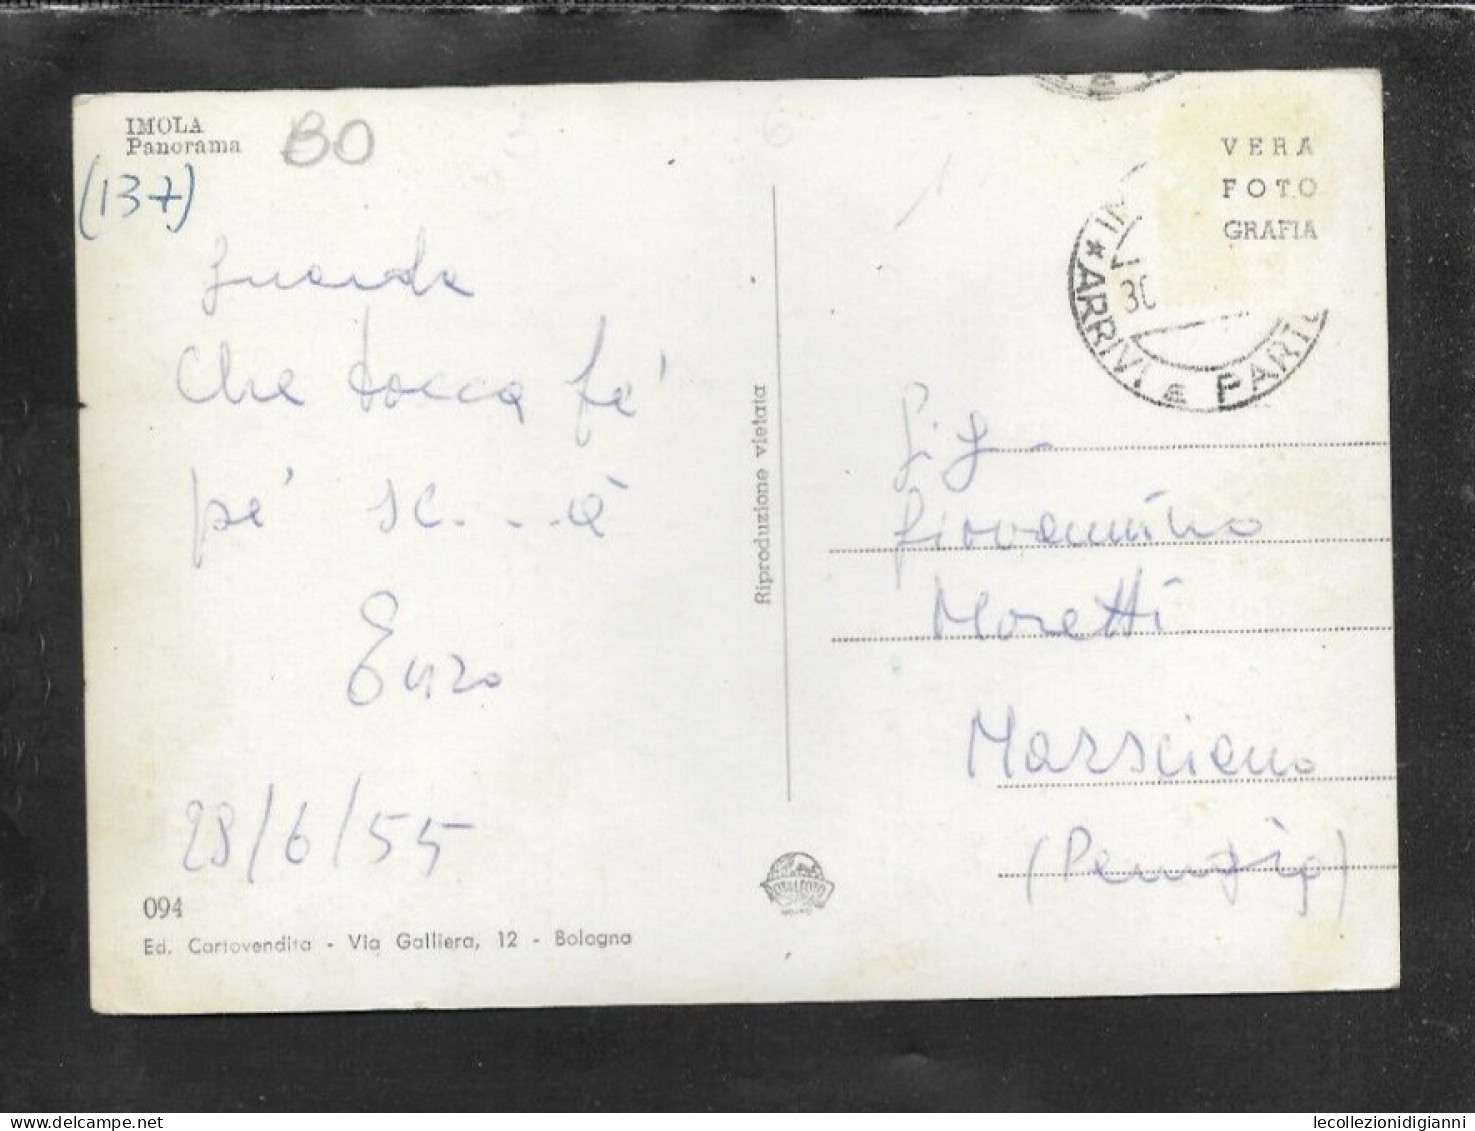 IMOLA
Panorama
BO
(137)
Guarda
che tocca fe'
pe' sc....è
Enzo
28/6/55
094
Ed. Cartovendita - Via Galliera, 12 - Bologna
Riproduzione vietata
VERA
FOTO
GRAFIA
IM
30
* ARRIVI E PARTE
Sig.
Giovannino
Moretti
Marsciano
(Perugia)
lecollezionidigianni